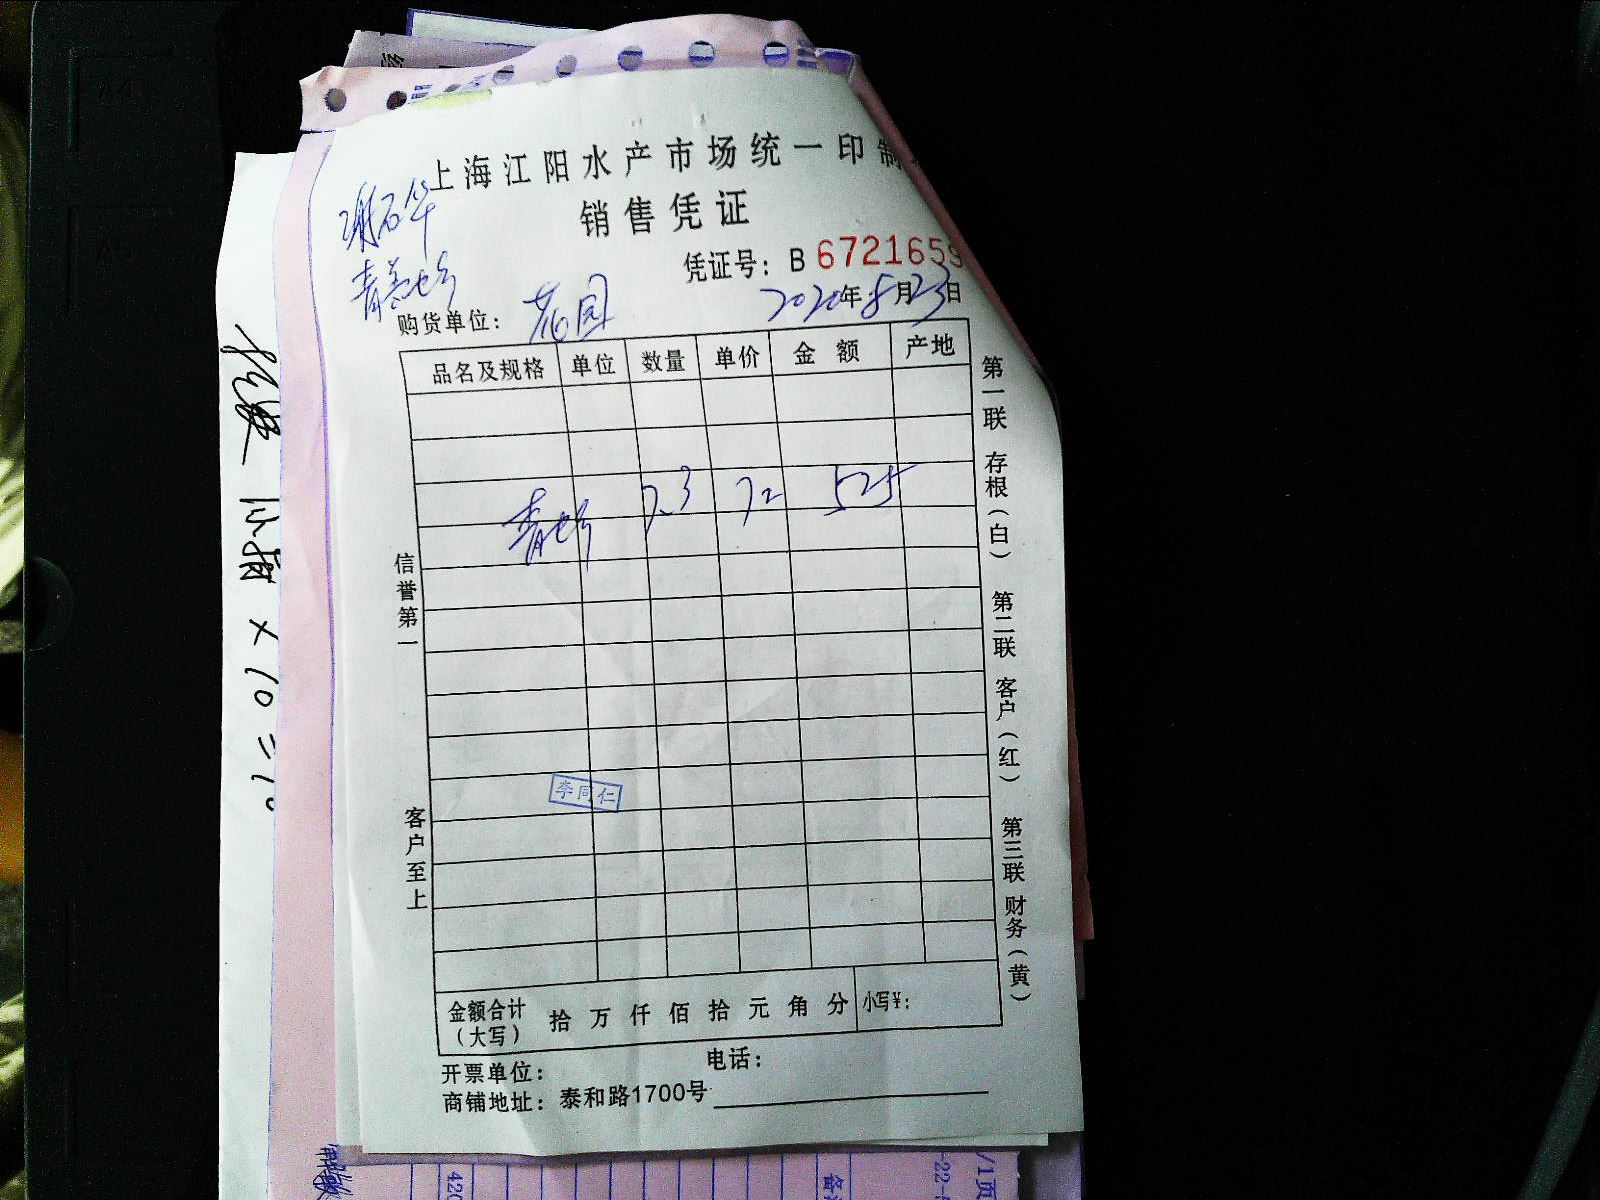 上海江阳水产市场统一印制
销售凭证
谢石华
凭证号：B 6721659
购货单位：花园
2020年8月23日
品名及规格 单位 数量 单价 金额 产地
7.3 72 525
信誉第一
客户至上
李同仁
第一联 存根（白） 第二联 客户（红） 第三联 财务（黄）
金额合计（大写） 拾 万 仟 佰 拾 元 角 分 小写¥：
开票单位： 电话：
商铺地址：泰和路1700号
× 10 =
420
备
-22-
/1页